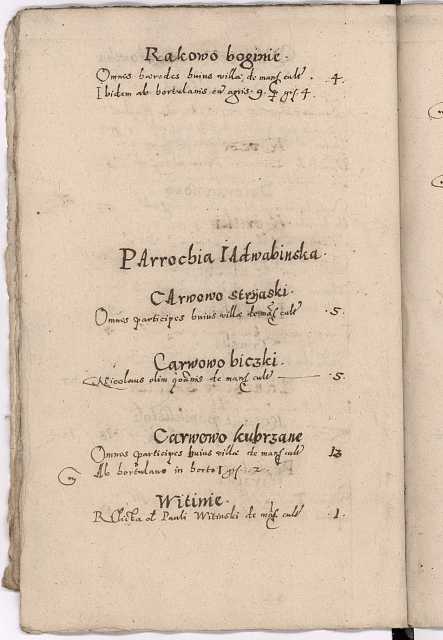 Rakowo boginie.
Omnes hæredes huius villæ de mans cult . 4.
Ibidem ab hortulanis cu agris . 9. gs. 4.
PArrochia IAdwabinska.
CArwowo stryaski.
Omnes participes huius villæ de mans cult . 5.
Carwowo biczki.
Nicolaus olim de mans cult . 5.
Carwowo kubrzane
Omnes participes huius villæ de mans cult 13
Ab hortulano in horto 1 gs. 2.
Witinie.
Relicta ol Pauli Witinski de mans cult . 1.